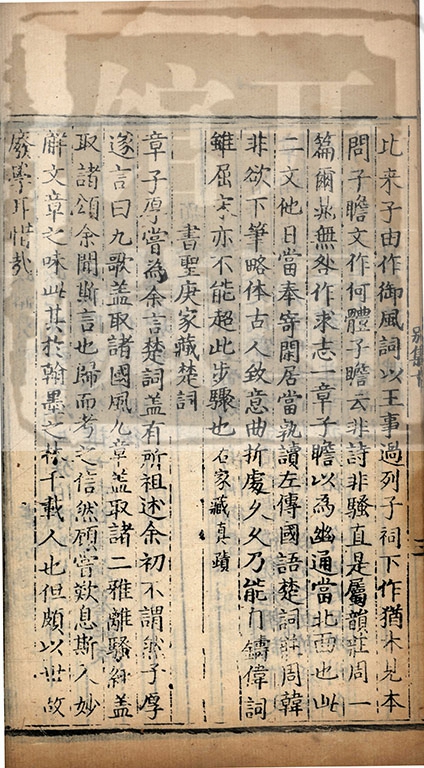 比来子由作御風詞以王事過列子祠下作猶未見本
問子瞻文作何體子瞻云非詩非騷直是屬韻莊周一
篇爾晁無咎作求志一章子瞻以為幽通當北面也此
二文他日當奉寄閑居當熟讀左傳國語楚詞莊周韓
非欲下筆略体古人致意曲折處久久乃能自鑄偉詞
雖屈宋亦不能超此步驟也 石家藏真蹟
書聖庚家藏楚詞
章子厚嘗為余言楚詞盖有所祖述余初不謂然子厚
遂言曰九歌盖取諸國風九章盖取諸二雅離騷經盖
取諸頌余聞斯言也歸而考之信然顧嘗歎息斯人妙
解文章之味此其於翰墨之林千載人也但頗以世故
廢學耳惜哉
别集十